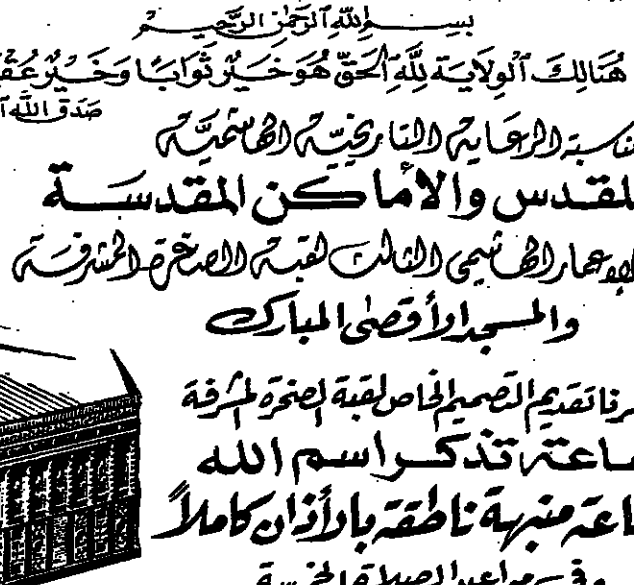 بِسْمِ اللَّهِ الرَّحْمَنِ الرَّحِيمِ
هُنَالِكَ ٱلْوِلَايَةُ لِلَّهِ ٱلْحَقِّ هُوَ خَيْرٌ ثَوَابًا وَخَيْرٌ
صدق الله
الرعاية التاريخية الهاشمية
والأماكن المقدسة
الهاشمي الثالث لقبة الصخرة المشرفة
والمسجد الأقصى المبارك
تقديم التصميم الخاص لقبة الصخرة المشرفة
تذكر اسم الله
منبهة ناطقة بالأذان كاملاً